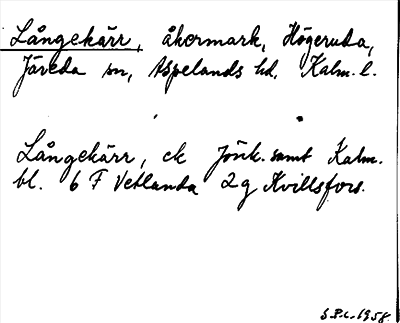 Långekärr, åkermark, Högeruda,
Järeda sn, Aspelands hd, Kalm. l.
Långekärr, ck Jönk. samt Kalm.
bl. 6 F Vetlanda 2g Kvillsfors.
S.P.C. 1958.